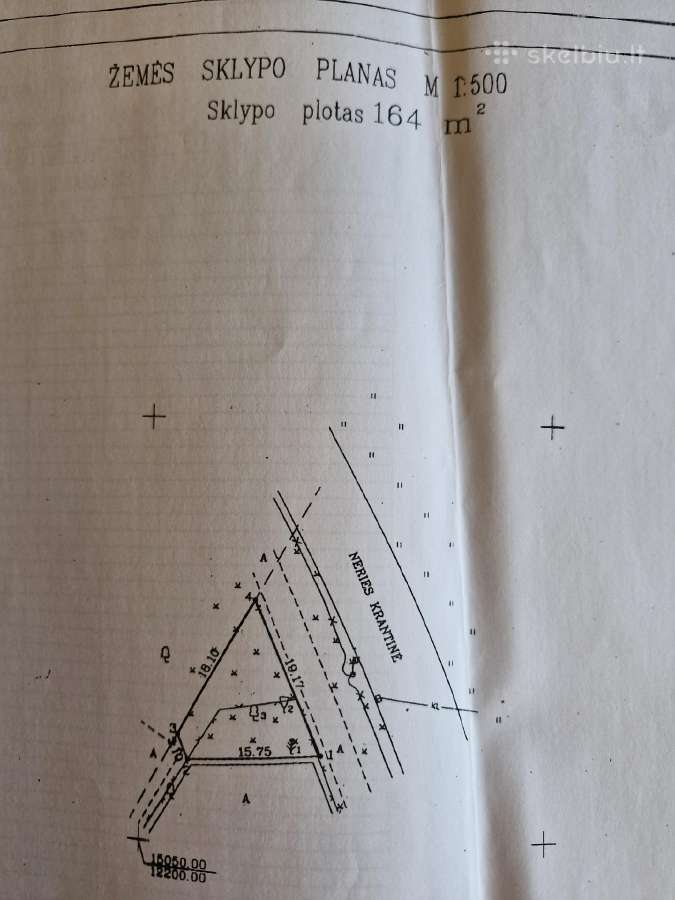 skelbiu.lt
ŽEMĖS SKLYPO PLANAS M 1:500
Sklypo plotas 164 m²
NERIES KRANTINĖ
A
4
18.10
19.17
3
2
3
A
15.75
1
1
A
2
A
15050.00
12200.00